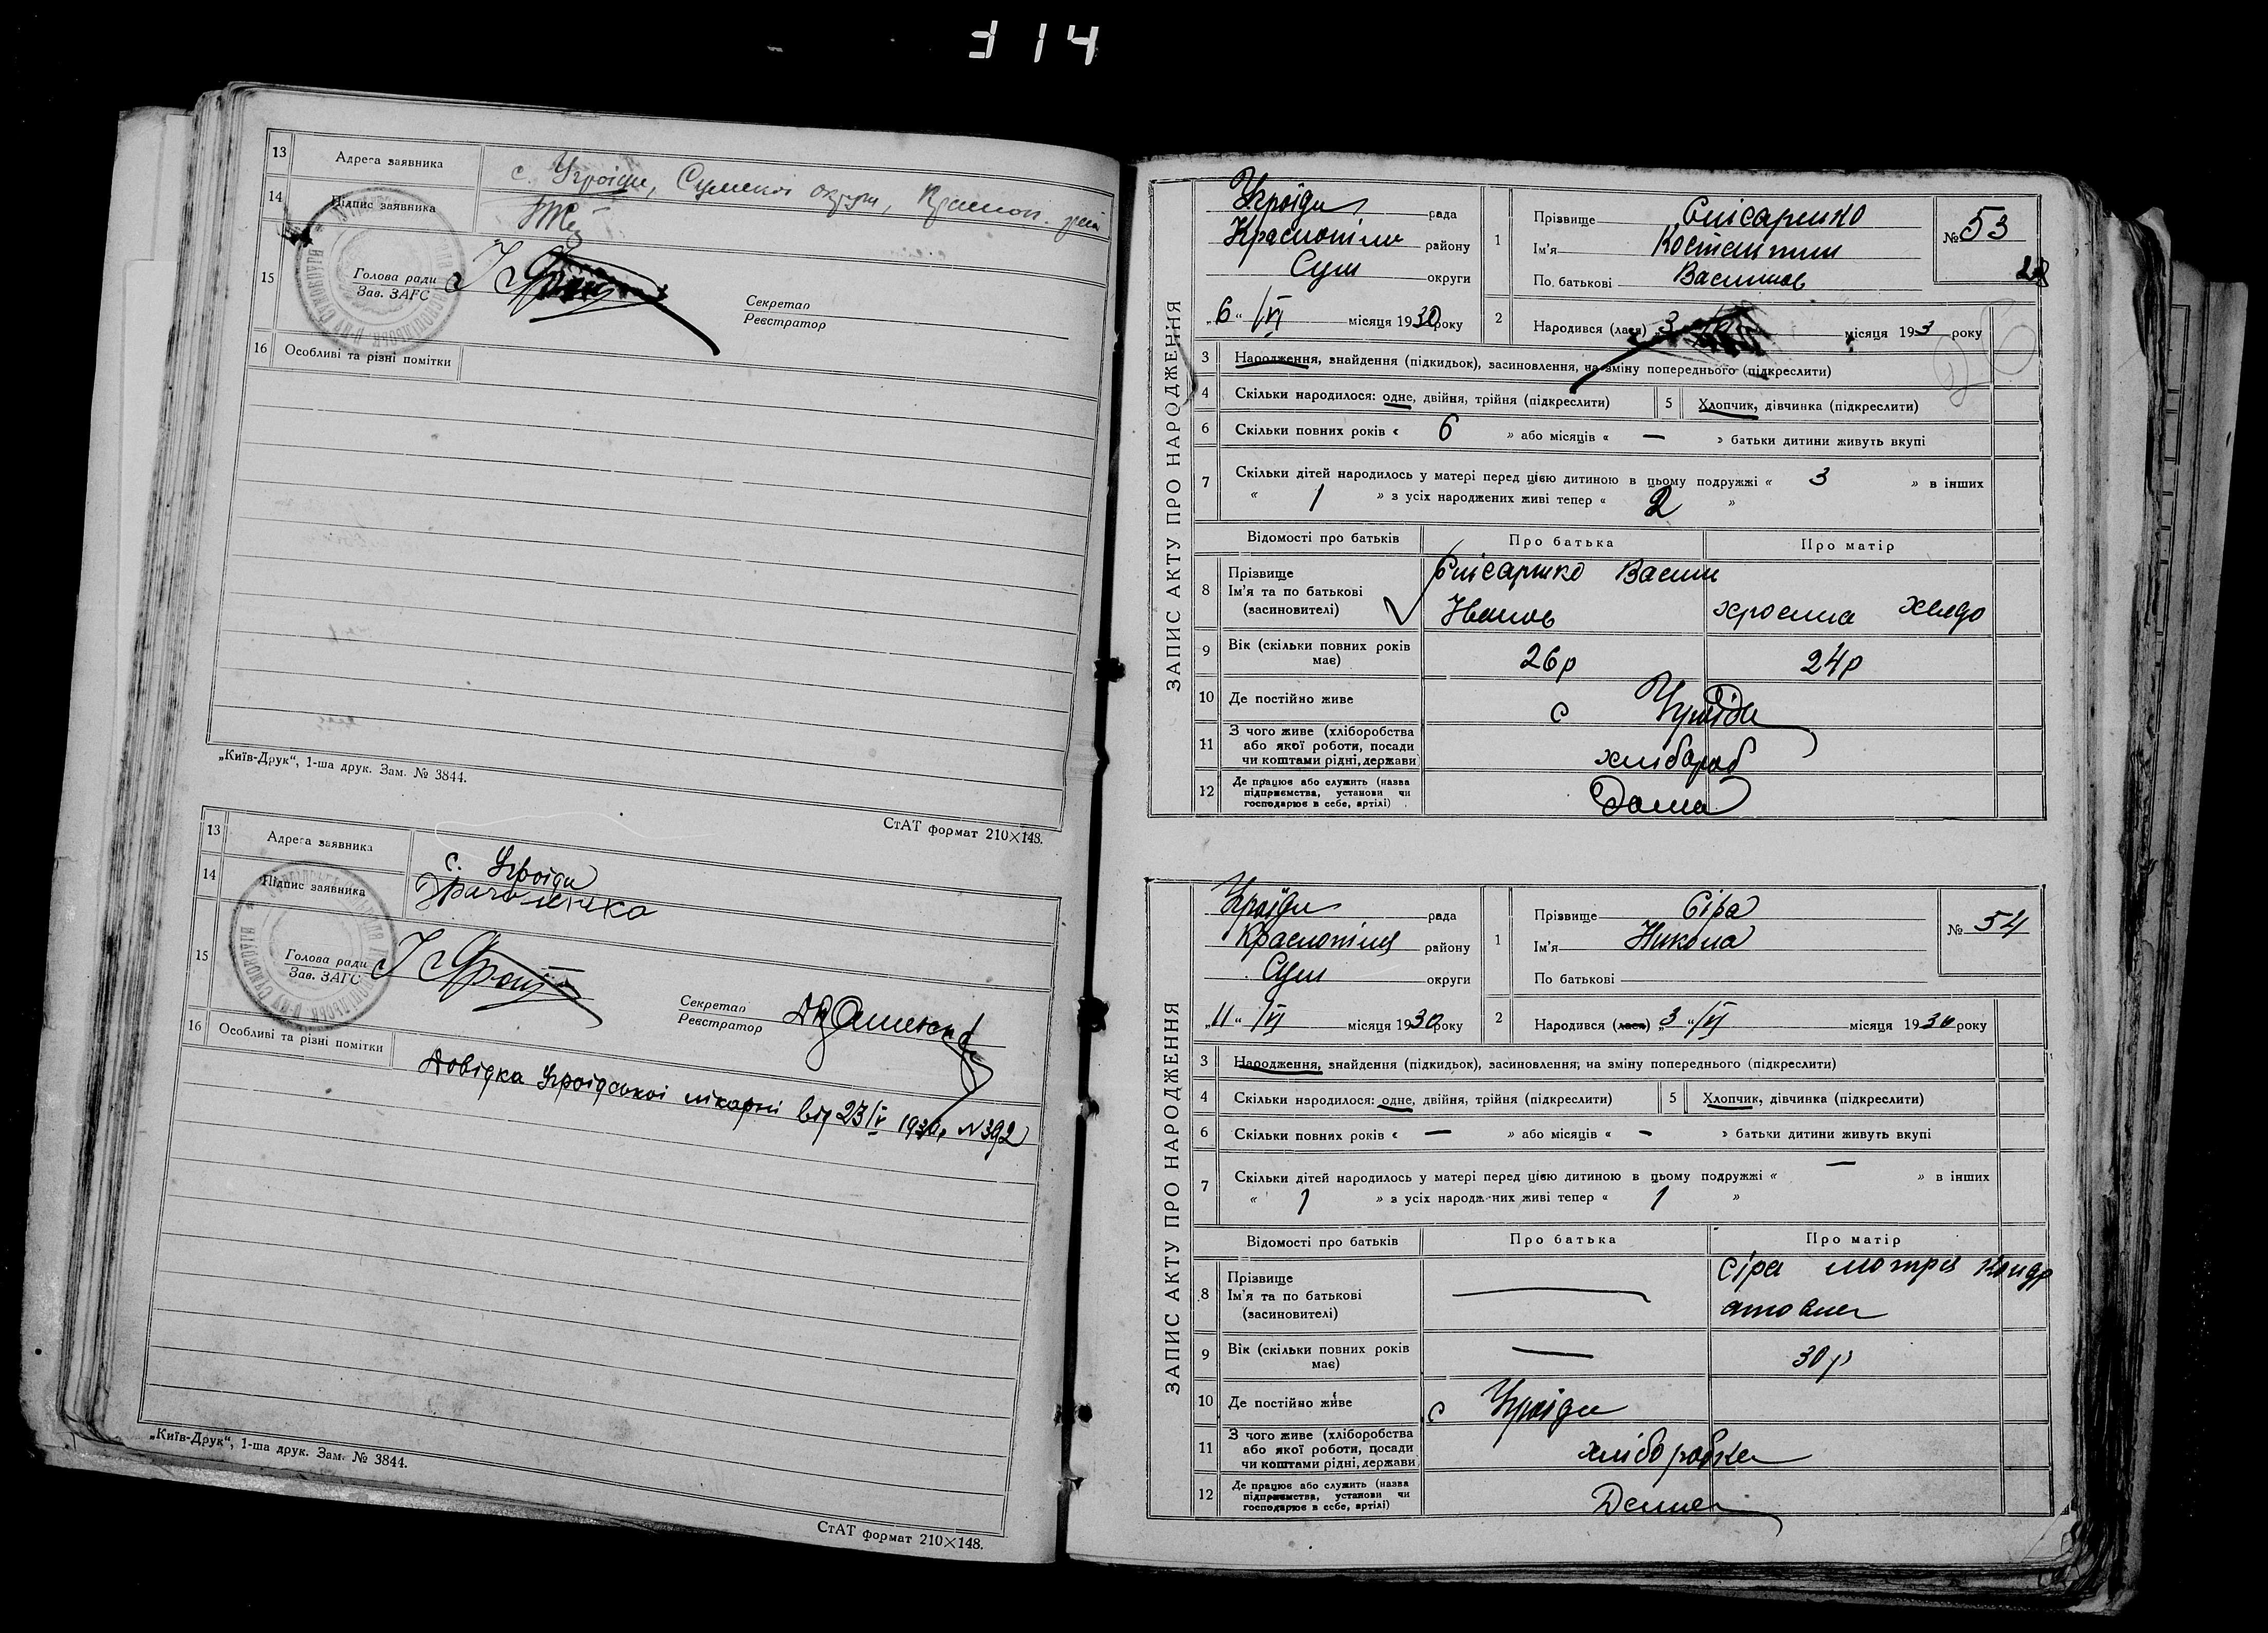 314
13 Адреса заявника с. Угроіди, Сумської округи, Краспоп. рай
14 Підпис заявника
15 Голова ради
Зав. ЗАГС
Секретар
Реєстратор
16 Особливі та різні помітки
„Київ-Друк“, 1-ша друк. Зам. № 3844.
СтАТ формат 210×148.
13 Адреса заявника с. Угроіди
14 Підпис заявника
15 Голова ради
Зав. ЗАГС
Секретар
Реєстратор
16 Особливі та різні помітки
Довідка Угроідської лікарні від 23/V 1930р. N 392
„Київ-Друк“, 1-ша друк. Зам. № 3844.
СтАТ формат 210×148.
ЗАПИС АКТУ ПРО НАРОДЖЕННЯ
Угроіди рада
Краснопіля району
Сум округи
„6“ /VI місяця 1930 року
1 Прізвище Слісаренко
Ім'я Костентин
По батькові Васильов
№ 53
28
2 Народився (лася) „3 місяця 193 року
3 Народження, знайдення (підкидьок), засиновлення, на зміну попереднього (підкреслити)
4 Скільки народилося: одне, двійня, трійня (підкреслити)
5 Хлопчик, дівчинка (підкреслити)
6 Скільки повних років « 6 » або місяців « — » батьки дитини живуть вкупі
7 Скільки дітей народилось у матері перед цією дитиною в цьому подружжі « 3 » в інших
« 1 » з усіх народжених живі тепер « 2 »
Відомості про батьків Про батька Про матір
8 Прізвище
Ім'я та по батькові
(засиновителі)
Слісаренко Васил
Иванов
9 Вік (скільки повних років має) 26р 24р
10 Де постійно живе с Угроіди
11 З чого живе (хліборобства
або якої роботи, посади
чи коштами рідні, держави
хлібороб
12 Де працює або служить (назва
підприємства, установи чи
господарює в себе, артілі)
Дома
ЗАПИС АКТУ ПРО НАРОДЖЕННЯ
Угроіди рада
Краснопіля району
Сум округи
„11“ /VI місяця 1930 року
1 Прізвище Сіра
Ім'я Никола
По батькові
№ 54
2 Народився (лася) „3“/VI місяця 1930 року
3 Народження, знайдення (підкидьок), засиновлення, на зміну попереднього (підкреслити)
4 Скільки народилося: одне, двійня, трійня (підкреслити)
5 Хлопчик, дівчинка (підкреслити)
6 Скільки повних років « — » або місяців « — » батьки дитини живуть вкупі
7 Скільки дітей народилось у матері перед цією дитиною в цьому подружжі « — » в інших
« 1 » з усіх народжених живі тепер « 1 »
Відомості про батьків Про батька Про матір
8 Прізвище
Ім'я та по батькові
(засиновителі)
— Сіра мотря Кондр
атовна
9 Вік (скільки повних років має) — 30р
10 Де постійно живе с Угроіди
11 З чого живе (хліборобства
або якої роботи, посади
чи коштами рідні, держави
хліборобка
12 Де працює або служить (назва
підприємства, установи чи
господарює в себе, артілі)
Дома